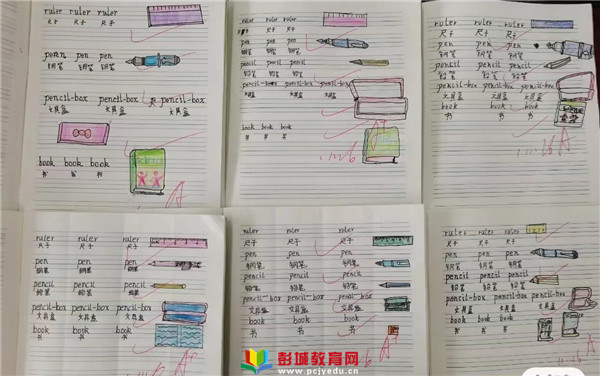 ruler ruler ruler
尺子 尺子 尺子
pen pen pen
钢笔 钢笔 钢笔
pencil-box pencil-box pencil-box
文具盒 文具盒 文具盒
book book book
书 书 书
Science
ruler ruler ruler
尺子 尺子 尺子
pen pen pen
钢笔 钢笔 钢笔
pencil pencil pencil
铅笔 铅笔 铅笔
pencil-box pencil-box pencil-box
文具盒 文具盒 文具盒
book book book
书 书 书
ruler ruler ruler
尺子 尺子 尺子
pen pen pen
钢笔 钢笔 钢笔
pencil pencil pencil
铅笔 铅笔 铅笔
pencil-box pencil-box pencil-box
文具盒 文具盒 文具盒
book book book
书 书 书
ruler ruler ruler
尺子 尺子 尺子
pen pen pen
钢笔 钢笔 钢笔
pencil pencil pencil
铅笔 铅笔 铅笔
pencil-box pencil-box pencil-box
文具盒 文具盒 文具盒
book book book
书 书 书
ruler ruler ruler
尺子 尺子 尺子
pen pen pen
钢笔 钢笔 钢笔
pencil pencil pencil
铅笔 铅笔 铅笔
pencil-box pencil-box pencil-box
文具盒 文具盒 文具盒
book book book
书 书 书
ruler ruler ruler
尺子 尺子 尺子
pen pen pen
钢笔 钢笔 钢笔
pencil pencil pencil
铅笔 铅笔 铅笔
pencil-box pencil-box pencil-box
文具盒 文具盒 文具盒
book book book
书 书 书
彭城教育网
www.pcjyedu.cn